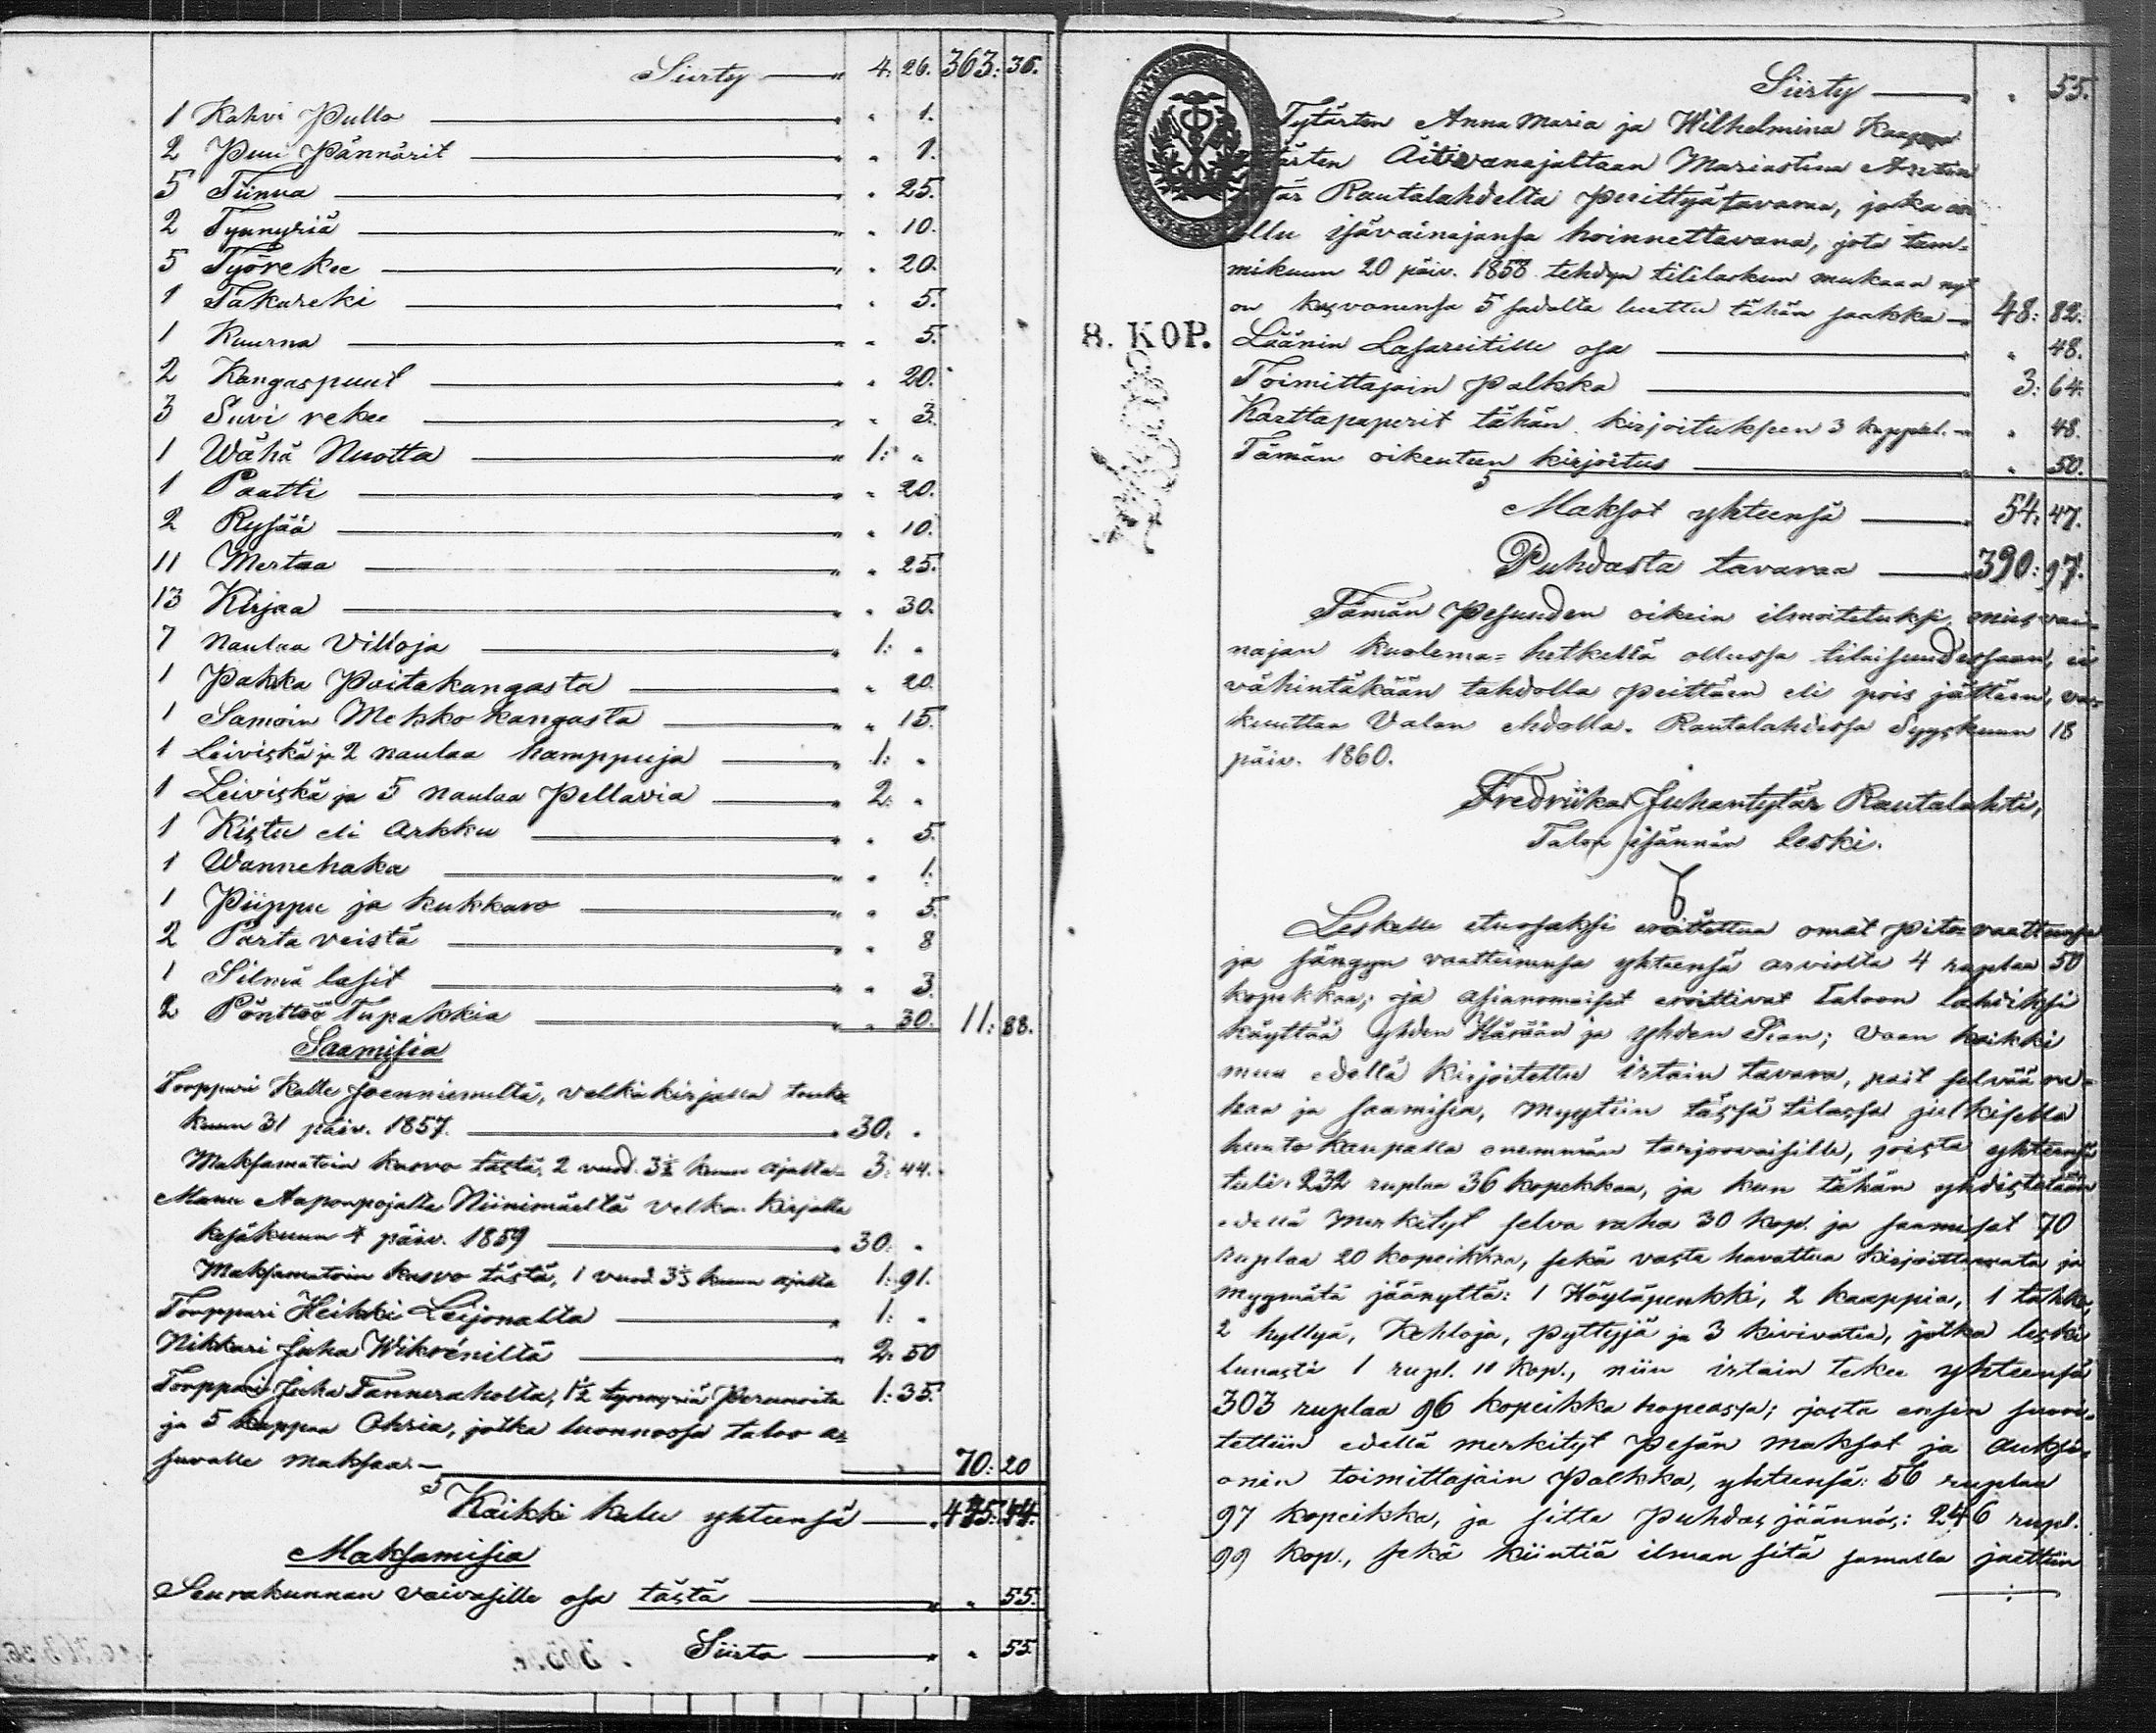 Siirty — „ 4: 26. 363: 36.
1 Kahvi Pullo — „ „ 1.
2 Puu Pännärit — „ „ 1.
5 Tiinua — „ „ 25.
2 Tynnyriä — „ „ 10.
5 Työrekee — „ „ 20.
1 Takareki — „ „ 5.
1 Kuurna — „ „ 5.
2 Kangaspuut — „ „ 20.
3 Suvi rekee — „ „ 3.
1 Wähä Nuotta — „ 1: „
1 Paatti — „ „ 20.
2 Rysää — „ „ 10.
11 Mertaa — „ „ 25.
13 Kirjaa — „ „ 30.
7 naulaa Villoja — „ 1: „
1 Pakka Paitakangasta — „ „ 20.
1 Samoin Mekko kangasta — „ „ 15.
1 Leiviskä ja 2 naulaa hamppuja — „ 1: „
1 Leiviskä ja 5 naulaa Pellavia — „ 2: „
1 Kistu eli Arkku — „ „ 5.
1 Wannehaka — „ „ 1.
1 Piippu ja kukkaro — „ „ 5.
2 Parta veistä — „ „ 8
1 Silmä lasit — „ „ 3.
2 Pönttöö Tupakkia — „ „ 30. 11: 88.
Saamisia
Torppari Kalle Joenniemeltä, velkakirjalla touko
kuun 31 päiv. 1857. — 30. „
Maksamatoin kasvo tästä, 2 vuod. 3½ kuun ajalta 3: 44.
Manu Aaponpojalta Niinimäeltä velka kirjalla
kesäkuun 4 päiv. 1859 — 30: „
Maksamatoin kasvo tästä, 1 vuod. 3⅓ kuun ajalta 1: 91.
Torppari Heikki Leijonalta — „ 1: „
Nikkari Juha Wikréniltä — „ 2: 50
Torppari Juha Tanneraholta, 1½ tynnyriä Perunoita 1: 35.
ja 5 kappaa Ohria, jotka luonnossa taloo a-
suvalle maksaa. — 70: 20
Kaikki kalu yhteensä — 445: 44.
Maksamisia
Seurakunnan vaivasille osa tästä — „ „ 55.
Siirto — „ „ 55
Siirty — „ „ 55.
Tytärten Anna Maria ja Wilhelmina
Äitivainajaltaan Mariastina Antin
Rautalahdelta perittyä tavaraa, joka on
ollu isävainajansa hoinnettavana, jota tam-
mikuun 20 päiv. 1858 tehdyn tililaskun mukaan nyt
on kasvonensa 5 sadalta luettu tähän saakka — 48: 82.
8. KOP.
Läänin Lasareitille osa — „ „ 48.
Toimittajain palkka — 3: 64.
Karttapaperit tähän kirjoitukseen 3 kappal. — „ 48.
Tämän oikeuteen kirjoitus — „ „ 50.
Maksot yhteensä — 54: 47.
Puhdasta tavaraa — 390: 97.
Tämän pesuuden oikein ilmoitetuksi, mies vai-
najan kuolema-hetkellä ollussa tilaisuudessaan, ei
vähintäkään tahdolla peittäen eli pois jättäen, va-
kuuttaa Valan ehdolla. Rautalahdessa Syyskuun 18
päiv. 1860.
Fredriika Juhantytär Rautalahti,
Talon isännän leski.
Leskelle etuosaksi eroitettua omat pito-vaatteensa
ja sängyn vaatteinensa yhteensä arviolta 4 ruplaa 50
kopekkaa; ja asianomaiset eroittivat taloon lahdiksi
käyttää yhden Härään ja yhden Sian; vaan kaikki
muu edellä kirjoitettu irtain tavara, pait selvää ra-
haa ja saamisia, myytiin tässä tilassa julkisella
huuto kaupalla enemmän tarjoovaisille, joista yhteensä
tuli 232 ruplaa 36 kopekkaa, ja kun tähän yhdistetään
edellä merkityt selva raha 30 kop. ja saamiset 70
ruplaa 20 kopeikkaa, sekä vasta havattua kirjoittamata ja
myymätä jäänyttä: 1 Höyläpenkki, 2 kaappia, 1 tahko,
2 hyllyä, Kehloja, pyttyjä ja 3 kivivatia, jotka leski
lunasti 1 rupl. 10 kop., niin irtain tekee yhteensä
303 ruplaa 96 kopeikka hopeassa; josta ensin suori-
tettiin edellä merkityt Pesän maksot ja auksi-
onin toimittajain Palkka, yhteensä: 56 ruplaa
97 kopeikka, ja sitte Puhdas jäännös: 246 rupl.
99 kop., sekä kiintiä ilman sitä samalla jaettiin